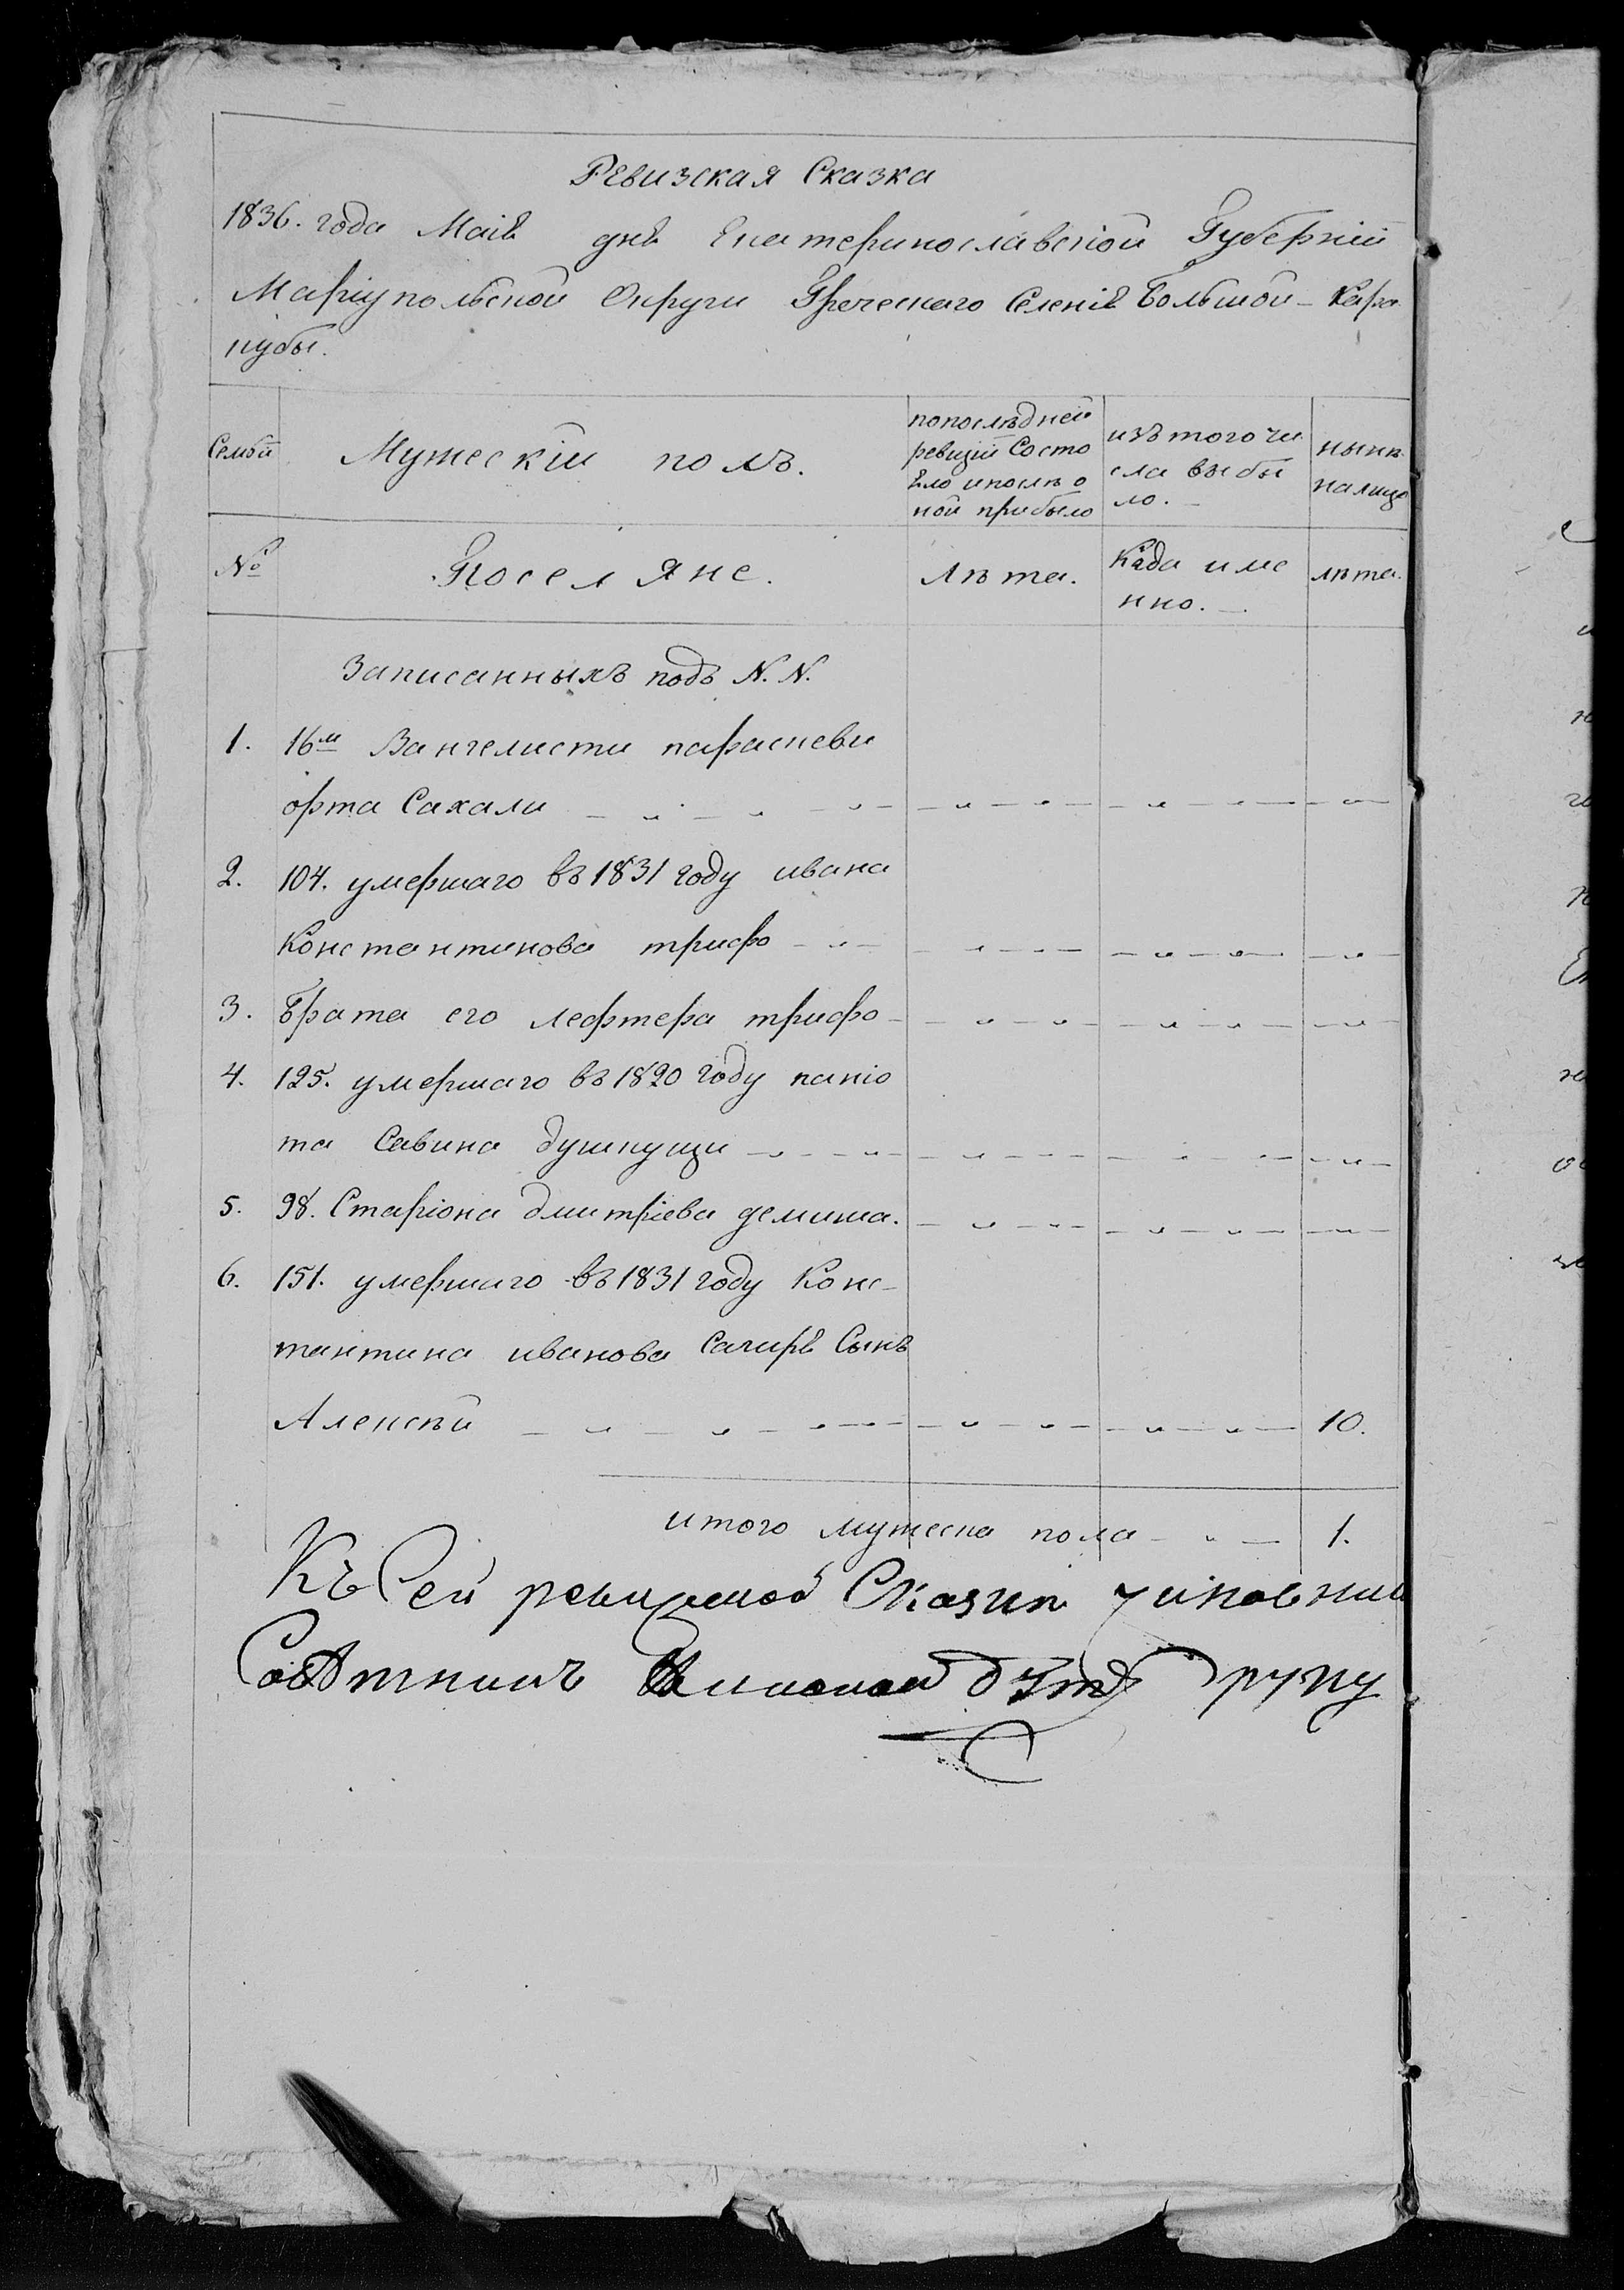 Ревизская Сказка
1836. года Маія дня Екатеринославской Губерніи
Маріупольской Округи Греческого Селенія Большой-Кара
кубы.
Семьи
Мужескій полъ.
попослѣдней
ревизіи Состо
яло и послѣ о
ной прибыло
изъ того чи
сла выбы
ло.
нынѣ
налицо
№
Поселяне.
Лѣта.
Када име
нно.
лѣта.
Записанныхъ подъ N. N.
1. 16м Вангелисти параскева
орта Сахали
2. 104. умершаго въ 1831 году ивана
Константинова трифо
3. Брата его лефтера трифо
4. 125. умершаго въ 1820 году паніо
та Савина
5. 98. Старіона дмитріева
6. 151. умершаго въ 1831 году Конс-
тантина иванова Сагиря Сынъ
Алексѣй 10.
итого мужеска пола 1.
Къ Сей ревизской Сказки
руку